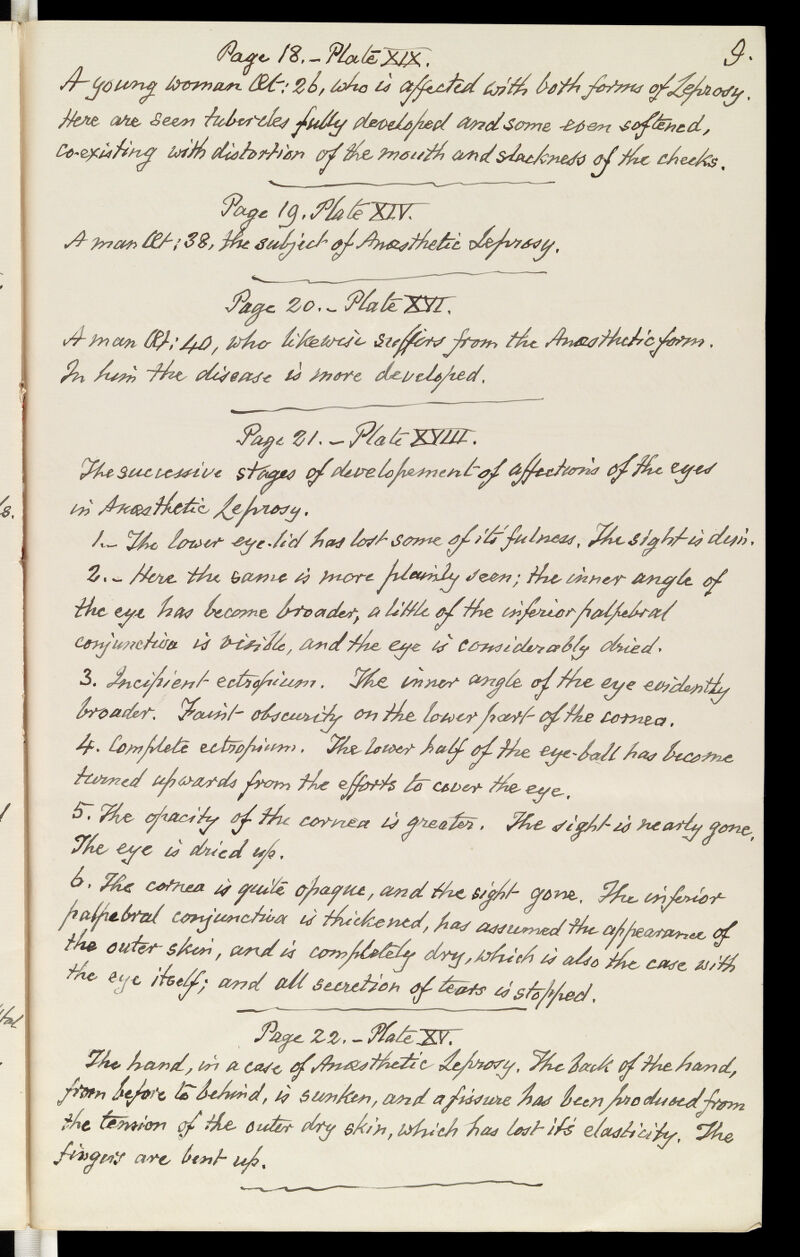 9.
Page 18. – Plate XIX.
A young woman Æt: 26, who is affected with both forms of Leprosy.
Here are seen tubercles fully developed and some even softened,
co-existing with distortion of the mouth and slackness of the cheeks.
Page 19. Plate XIV.
A man Æt: 38, the subject of Anæsthetic Leprosy.
Page 20. – Plate XVI.
A man Æt: 40, who likewise suffers from the Anæsthetic form.
In him the disease is more developed.
Page 21. – Plate XVIII.
The successive stages of developement of affections of the eyes
in Anæsthetic Leprosy.
1. – The lower eye-lid has lost some of its fulness. The sight is dim.
2. – Here the same is more plainly seen; the inner angle of
the eye has become broader, a little of the inferior palpebral
conjunctiva is visible, and the eye is considerably dried.
3. Incipient ectropium. The inner angle of the eye evidently
broader. Faint obscurity on the lower part of the cornea.
4. Complete ectropium. The lower half of the eye-ball has become
turned upwards from the efforts to cover the eye.
5. The opacity of the cornea is greater. The sight is nearly gone.
The eye is dried up.
6. The cornea is quite opaque, and the sight gone. The inferior
palpebral conjunctiva is thickened, has assumed the appearance of
the outer skin, and is completely dry, which is also the case with
the eye itself; and all secretion of tears is stopped.
Page 22. – Plate XV.
The hand, in a case of Anæsthetic Leprosy. The back of the hand,
from before to behind, is sunken, and a fissure has been produced from
the tension of the outer dry skin, which has lost its elasticity. The
fingers are bent up.